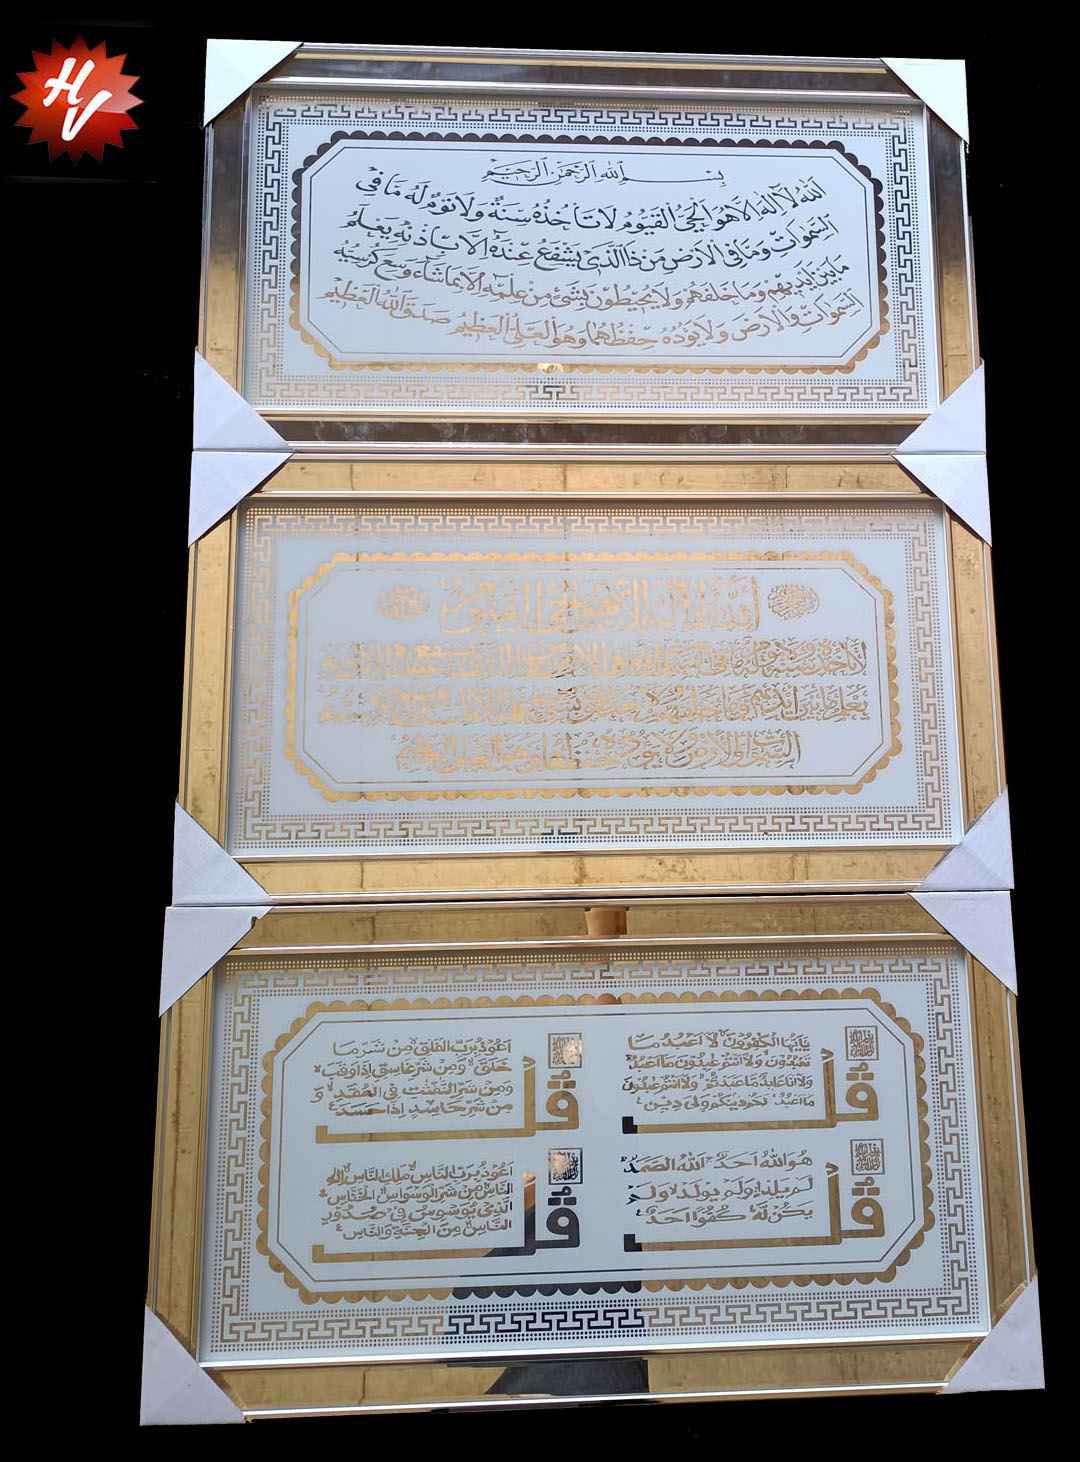 HV
بِسْمِ اللهِ الرَّحْمٰنِ الرَّحِيْمِ
اَللهُ لَا اِلٰهَ اِلَّا هُوَ الْحَيُّ الْقَيُّومُ لَا تَأْخُذُهُ سِنَةٌ وَلَا نَوْمٌ لَهُ مَا فِي
السَّمٰوَاتِ وَمَا فِي الْاَرْضِ مَنْ ذَا الَّذِي يَشْفَعُ عِنْدَهُ اِلَّا بِاِذْنِهِ يَعْلَمُ
مَا بَيْنَ اَيْدِيهِمْ وَمَا خَلْفَهُمْ وَلَا يُحِيطُونَ بِشَيْءٍ مِنْ عِلْمِهِ اِلَّا بِمَا شَاءَ وَسِعَ كُرْسِيُّهُ
السَّمٰوَاتِ وَالْاَرْضَ وَلَا يَؤُدُهُ حِفْظُهُمَا وَهُوَ الْعَلِيُّ الْعَظِيمُ صَدَقَ اللهُ الْعَظِيمُ
اَللهُ لَا اِلٰهَ اِلَّا هُوَ الْحَيُّ الْقَيُّومُ
لَا تَأْخُذُهُ سِنَةٌ وَلَا نَوْمٌ لَهُ مَا فِي
يَعْلَمُ مَا بَيْنَ اَيْدِيهِمْ وَمَا خَلْفَهُمْ وَلَا
السَّمٰوَاتِ وَالْاَرْضَ وَلَا يَؤُدُهُ حِفْظُهُمَا وَهُوَ الْعَلِيُّ الْعَظِيمُ
قُلْ
يٰٓاَيُّهَا الْكٰفِرُوْنَ لَآ اَعْبُدُ مَا
تَعْبُدُوْنَ وَلَآ اَنْتُمْ عٰبِدُوْنَ مَآ اَعْبُدُ
وَلَآ اَنَا عَابِدٌ مَّا عَبَدْتُّمْ وَلَآ اَنْتُمْ عٰبِدُوْنَ
مَآ اَعْبُدُ لَكُمْ دِيْنُكُمْ وَلِيَ دِيْنِ
قُلْ
اَعُوْذُ بِرَبِّ الْفَلَقِ مِنْ شَرِّ مَا
خَلَقَ وَمِنْ شَرِّ غَاسِقٍ اِذَا وَقَبَ
وَمِنْ شَرِّ النَّفّٰثٰتِ فِي الْعُقَدِ وَ
مِنْ شَرِّ حَاسِدٍ اِذَا حَسَدَ
قُلْ
هُوَ اللهُ اَحَدٌ اَللهُ الصَّمَدُ
لَمْ يَلِدْ وَلَمْ يُوْلَدْ وَلَمْ
يَكُنْ لَّهٗ كُفُوًا اَحَدٌ
قُلْ
اَعُوْذُ بِرَبِّ النَّاسِ مَلِكِ النَّاسِ اِلٰهِ
النَّاسِ مِنْ شَرِّ الْوَسْوَاسِ الْخَنَّاسِ
الَّذِيْ يُوَسْوِسُ فِيْ صُدُوْرِ
النَّاسِ مِنَ الْجِنَّةِ وَالنَّاسِ